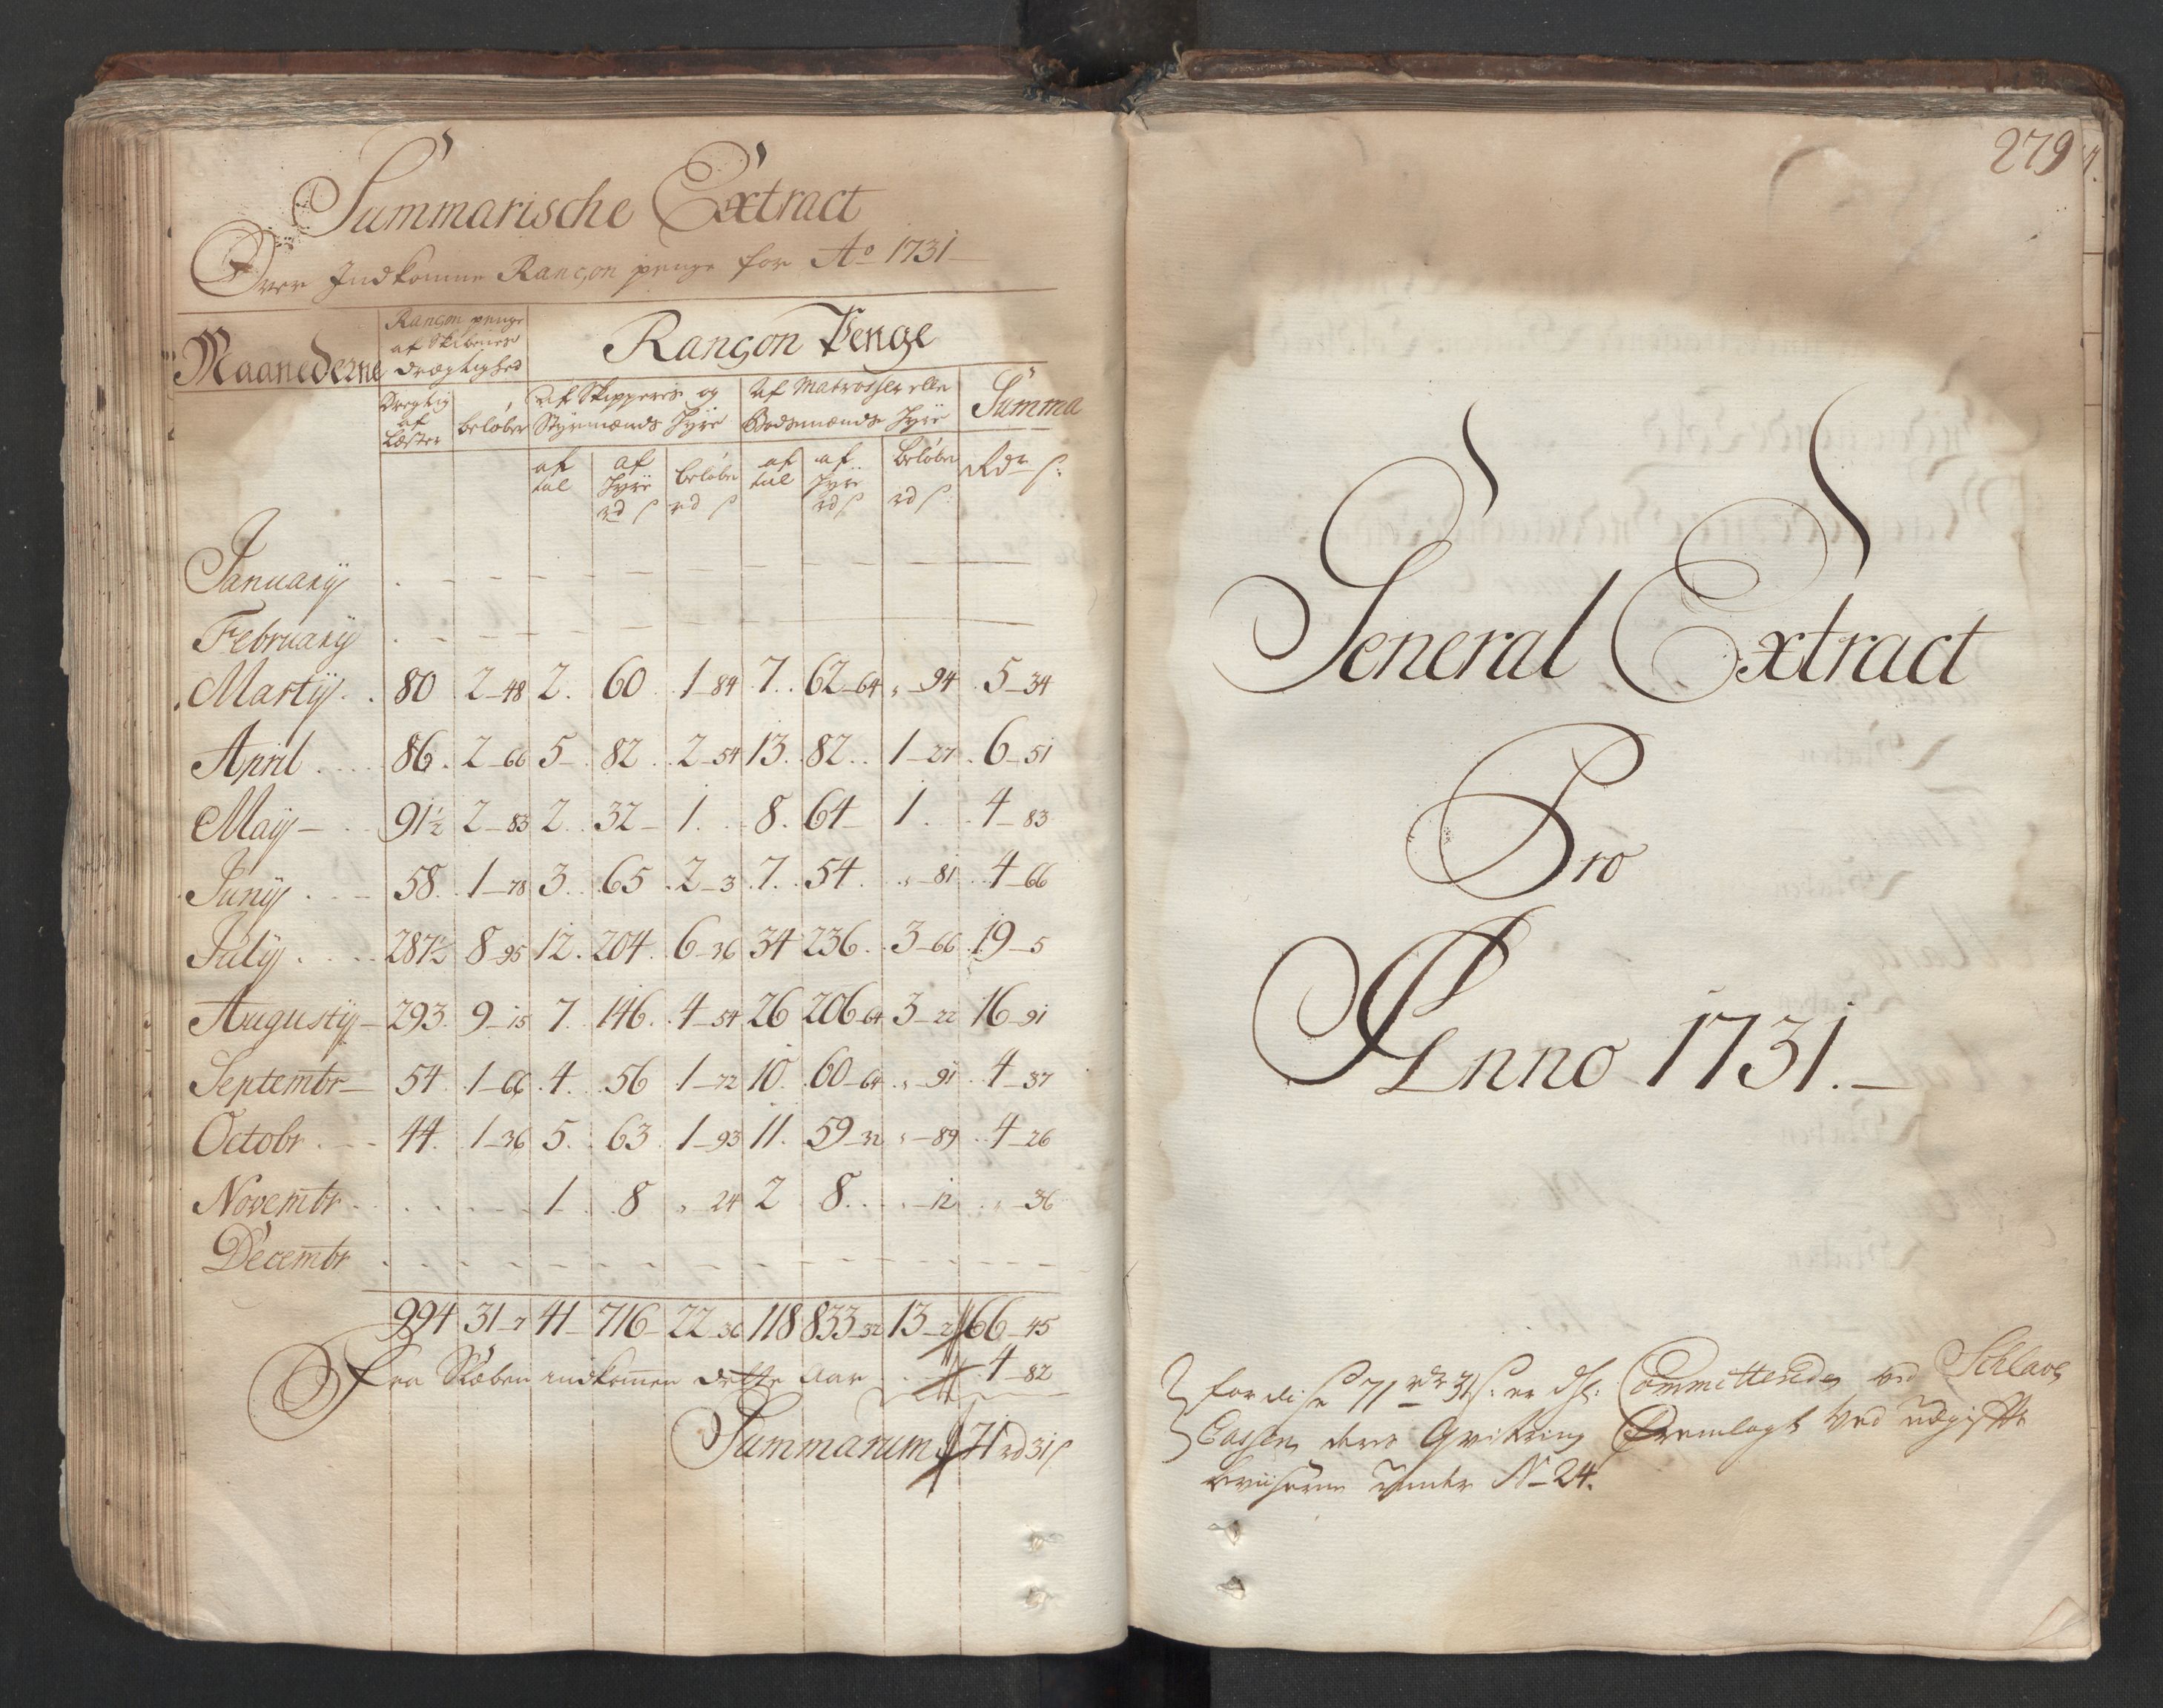 Summarische Extract
Over Indkomne Rançon penge for Ao 1731
Maanederne
Rançon penge
af Skibenes
Drægtighed
Rançon Penge
Drægtig
af
Læster
beløber
Af Skippernes og
Styrmænds Hyre
Af Matrosser eller
Baadsmænds Hyre
Summa
af
tal
af
Hyre
rd ß
beløber
rd ß
af
tal
af
Hyre
rd ß
beløber
rd ß
Rdr ß:
January . - - - - - - - - -
February . - - - - - - - - -
Martij . . 80 2-48 2. 60 1-84 7. 62-64 " -94 5-34
April . . . 86. 2-66 5- 82 2-54 13. 82. 1-27 6-51
Maij - . . 91½ 2-83 2. 32- 1. 8. 64- 1. 4-83
Junij . . - 58. 1-78 3. 65 2-3 7. 54. " -81 4-66
Julij . . . 287½ 8-95 12. 204. 6-36 34 236. 3-66 19-5
Augustij - 293. 9-15 7. 146. 4-54 26 206-64 3-22 16-91
Septembr - 54 1-66 4. 56 1-72 10. 60-64 " -91 4-37
Octobr . - - 44. 1-36 5. 63 1-93 11. 59-32 " -89 4-26
Novembr . . . . 1 8 " 24 2 8. . " -12 " -36
Decembr . - - - - - - - - -
994 31-7 41- 716- 22-36 118 833-32 13-2 66-45
Fra Skaben indkommen dette Aar . . 4-82
Summarum 71 rd 31 ß
279
General Extract
Pro
Anno 1731. -
for disse 71 rdr 31 ß: er dhr: Committerede ved Schlave
Cassen deres Qvitering Fremlagt ved udgiffts
beviiserne under No 24.